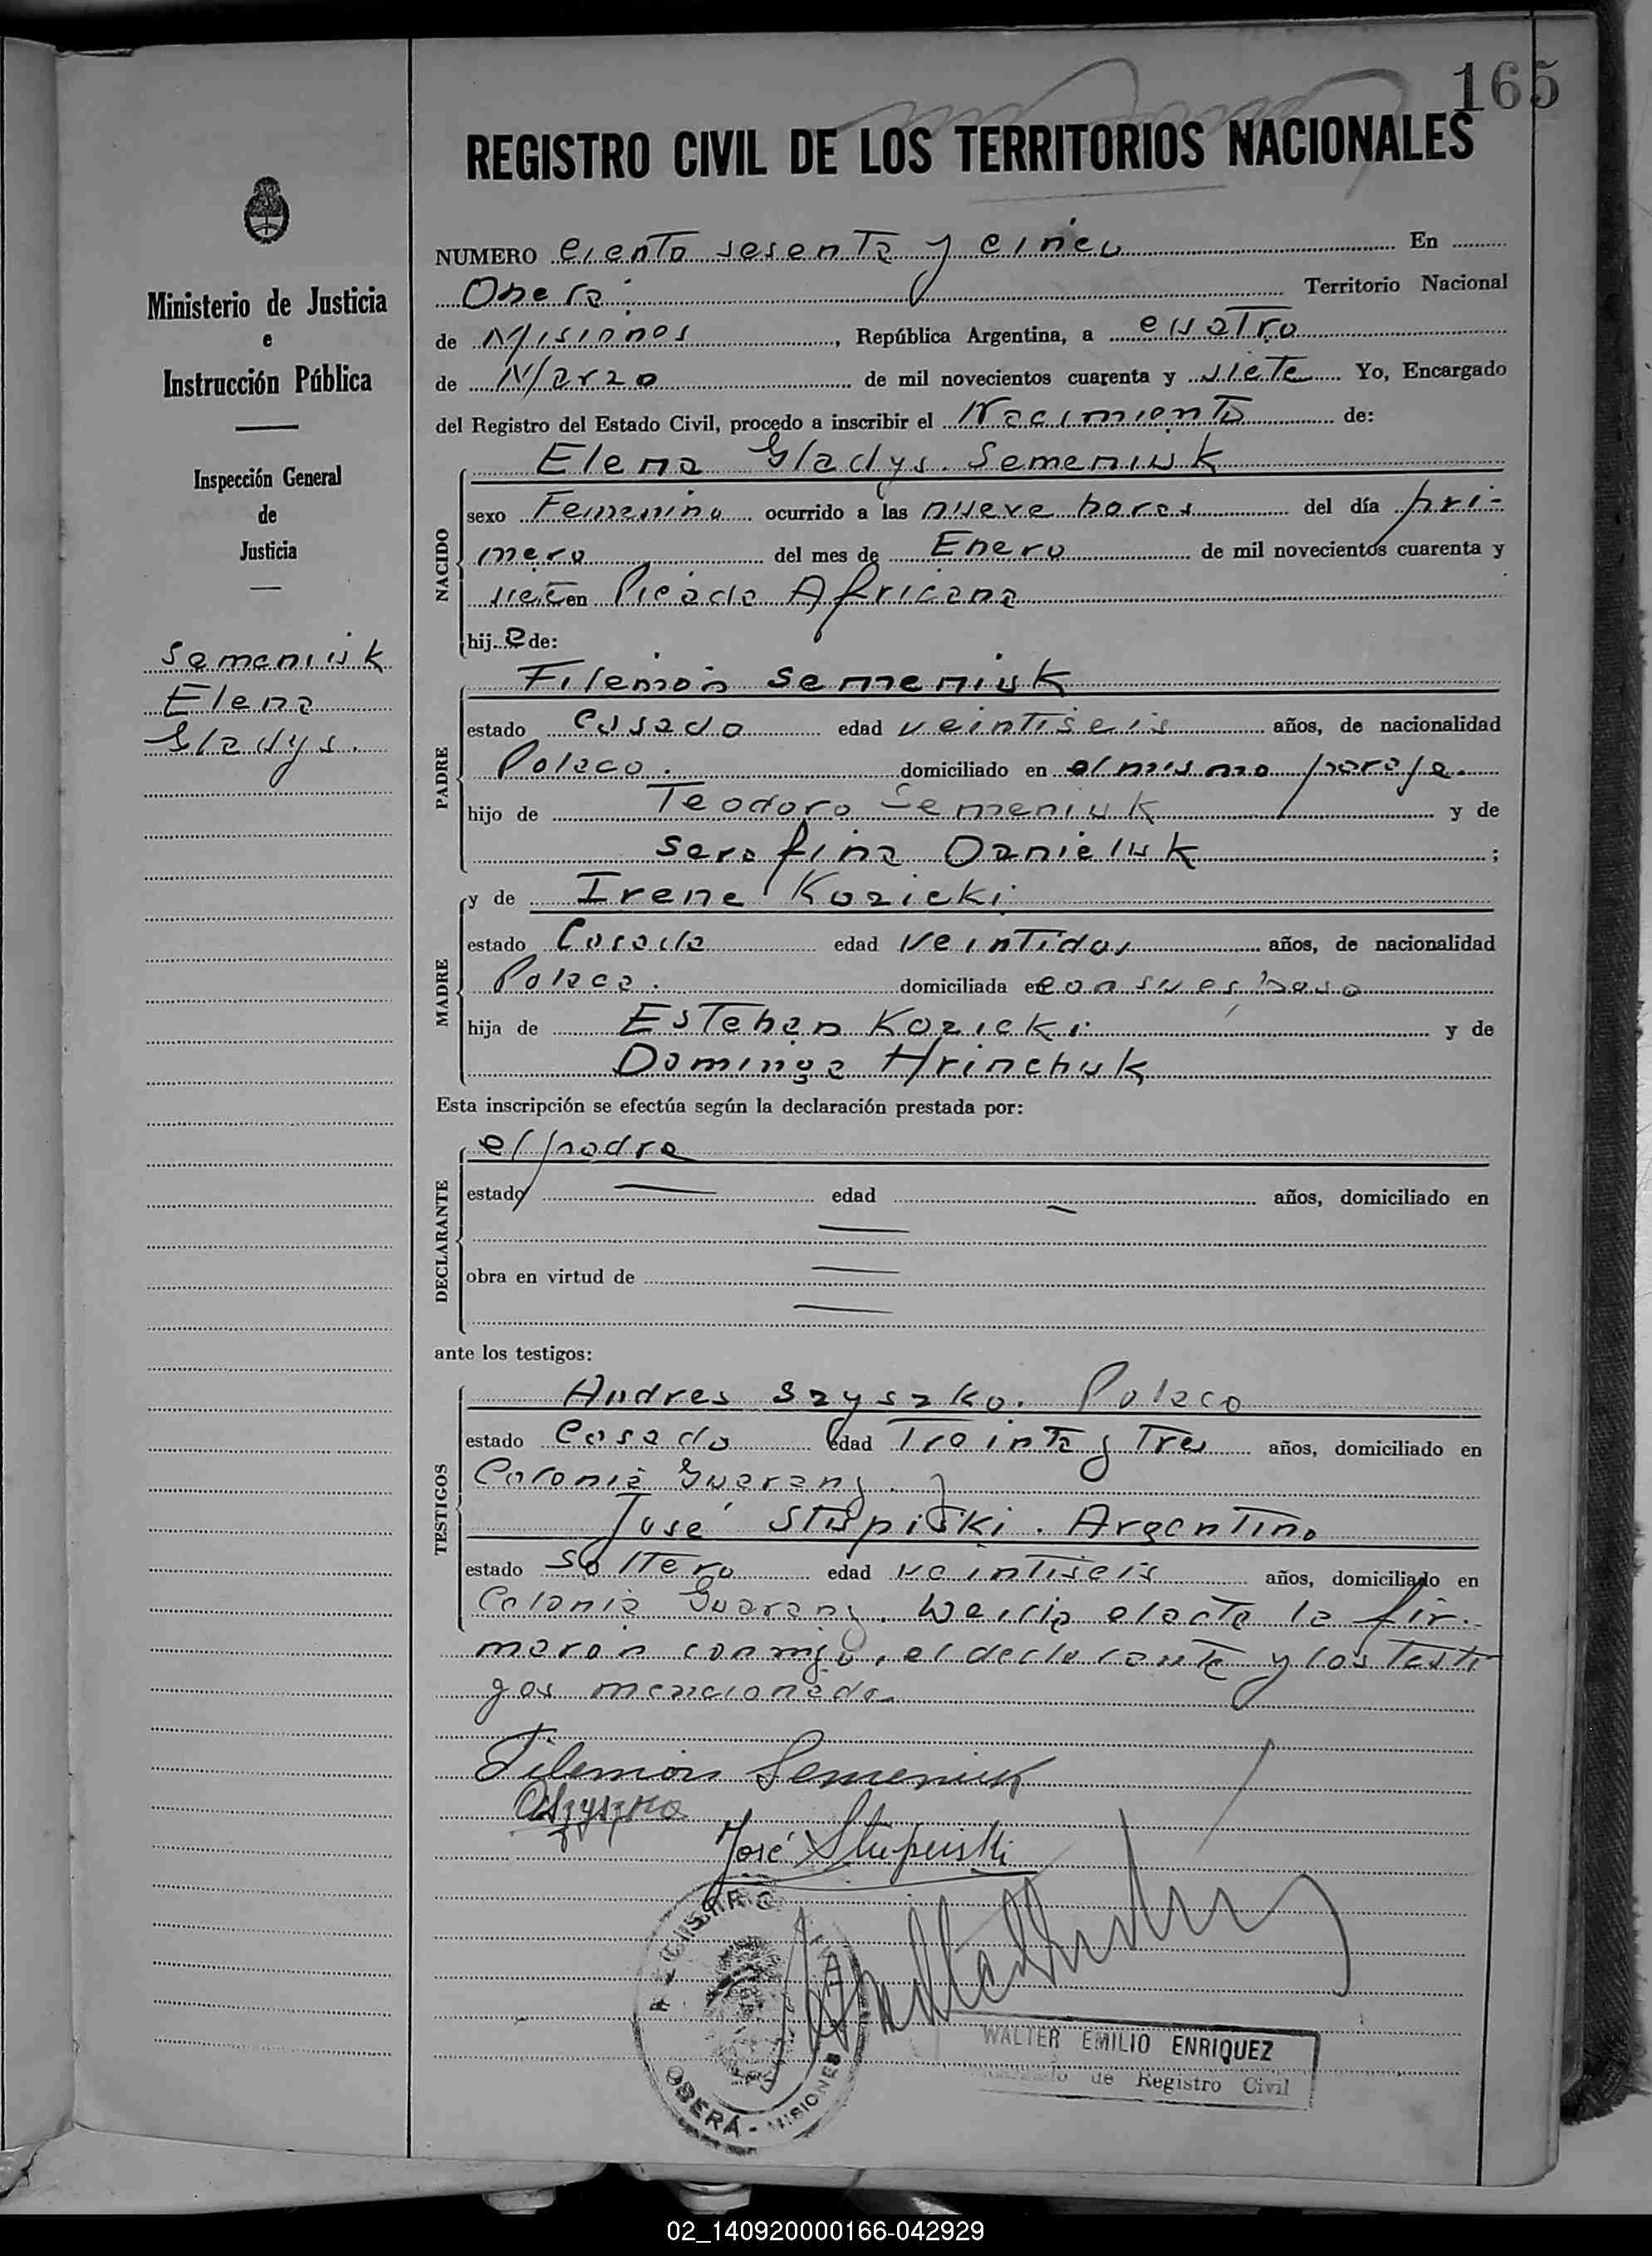 165
REGISTRO CIVIL DE LOS TERRITORIOS NACIONALES
Ministerio de Justicia
e
Instrucción Pública
Inspección General
de
Justicia
Semeniuk
Elena
Gladys.
NUMERO ciento sesenta y cinco En
Oberá Territorio Nacional
de Misiones, República Argentina, a cuatro
de Marzo de mil novecientos cuarenta y siete Yo, Encargado
del Registro del Estado Civil, procedo a inscribir el Nacimiento de:
NACIDO
Elena Gladys Semeniuk
sexo Femenino ocurrido a las nueve horas del día pri-
mero del mes de Enero de mil novecientos cuarenta y
siete en Picada Africana
hija de:
PADRE
Filemón Semeniuk
estado Casado edad veintiseis años, de nacionalidad
Polaco. domiciliado en el mismo paraje.
hijo de Teodoro Semeniuk y de
Serafina Danieluk;
MADRE
y de Irene Kozicki
estado Casada edad veintidos años, de nacionalidad
Polaca. domiciliada en con su esposo
hija de Esteban Kozicki y de
Dominga Hrinchuk
Esta inscripción se efectúa según la declaración prestada por:
DECLARANTE
el padre
estado edad años, domiciliado en
obra en virtud de
ante los testigos:
TESTIGOS
Andres Szyszko. Polaco
estado Casado edad Treinta y Tres años, domiciliado en
Colonia Guarany.
José Stupiski. Argentino
estado soltero edad veintiseis años, domiciliado en
Colonia Guarany. Leida el acta la fir-
maron conmigo, el declarante y los testi
gos mencionados
Filemon Semeniuk
José Stupiski
REGISTRO CIVIL
OBERÁ - MISIONES
WALTER EMILIO ENRIQUEZ
Encargado de Registro Civil
02_140920000166-042929